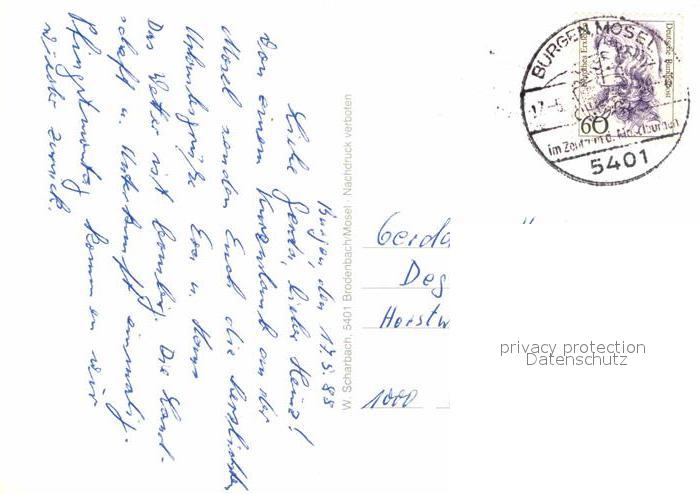 Burgen, den 17.5.88
Liebe Gerda, lieber Heinz!
Von einem Kurzurlaub an der
Mosel senden Euch die herzlichsten
Urlaubsgrüße Eva u. Hans
Das Wetter ist bombig. Die Land-
schaft u. Unterkunft einmalig.
Pfingstmontag kommen wir
wieder zurück.
W. Scharbach, 5401 Brodenbach/Mosel Nachdruck verboten
BURGEN, MOSEL
17.-5.
5401
Deutsche Bundespost
60
Gerda
Deg
Horstw
1000
privacy protection
Datenschutz